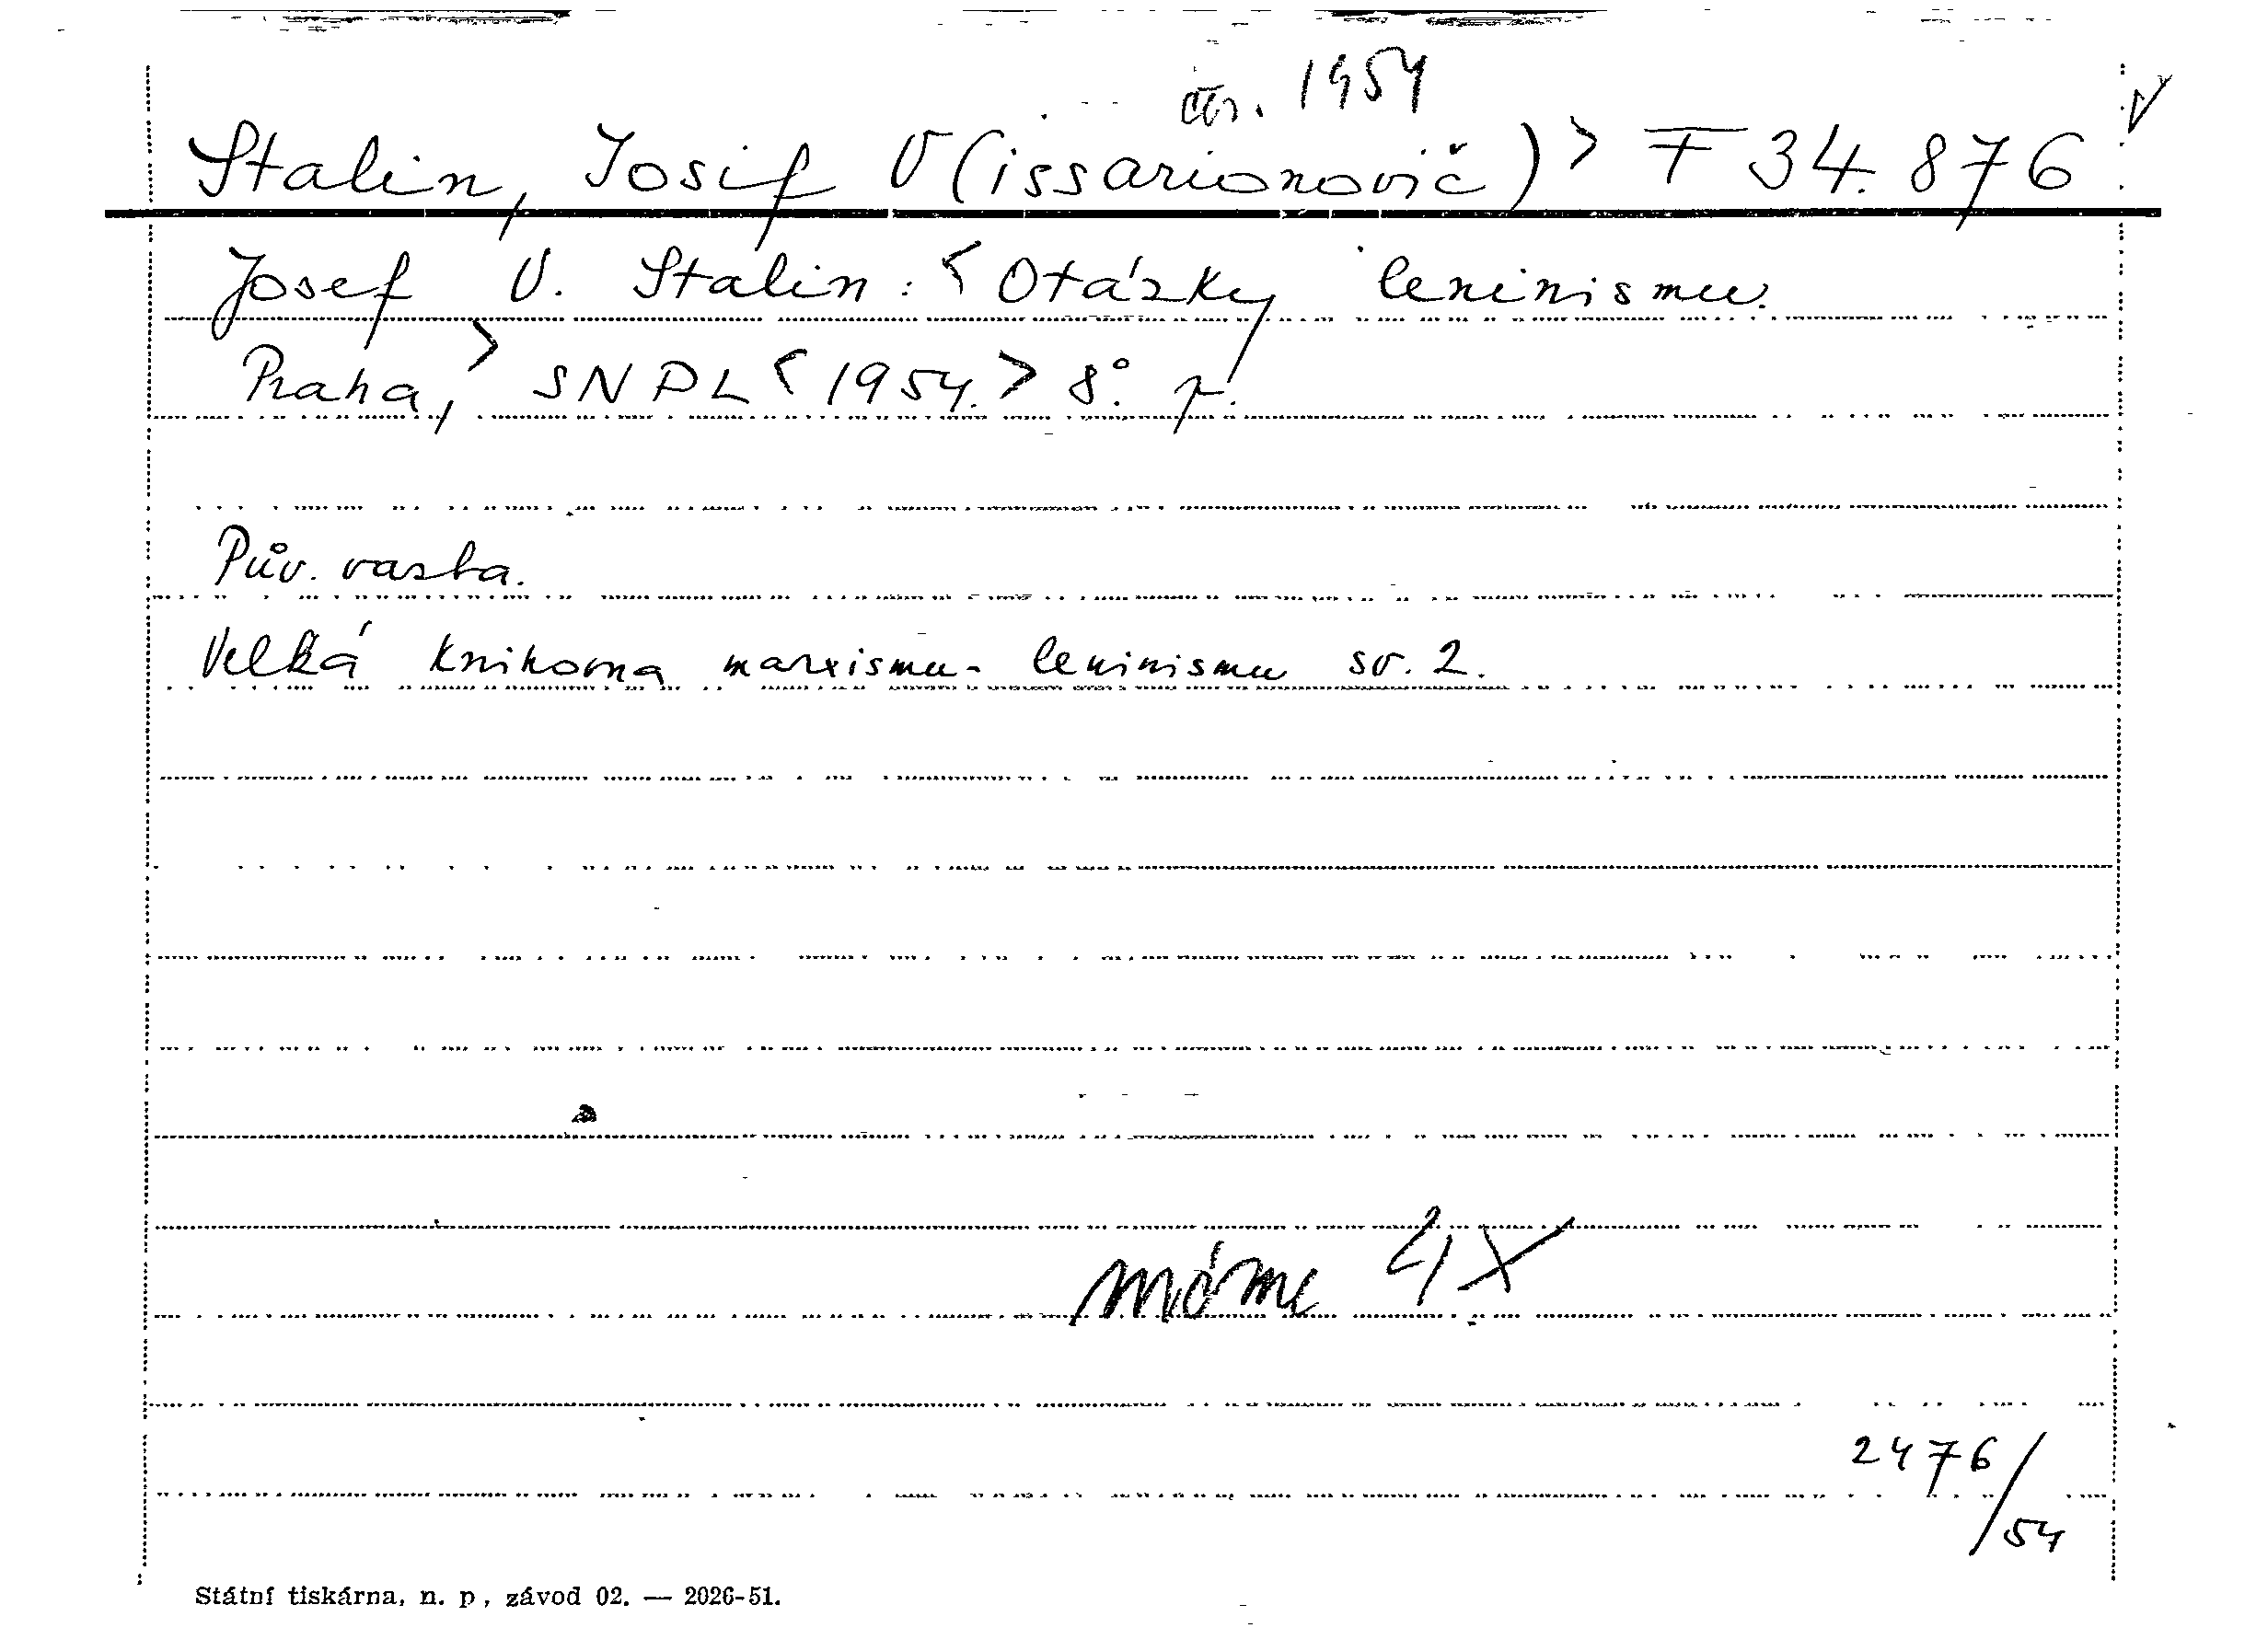 1954
Stalin, Josif V(issarionovič) > F 34.876
Josef V. Stalin: < Otázky leninismu.
Praha, > SNPL < 1954. > 8°. p.
Pův. vazba.
Velká knihovna marxismu-leninismu sv. 2.
máme 4X
2476/54
Státní tiskárna, n. p, závod 02. — 2026-51.